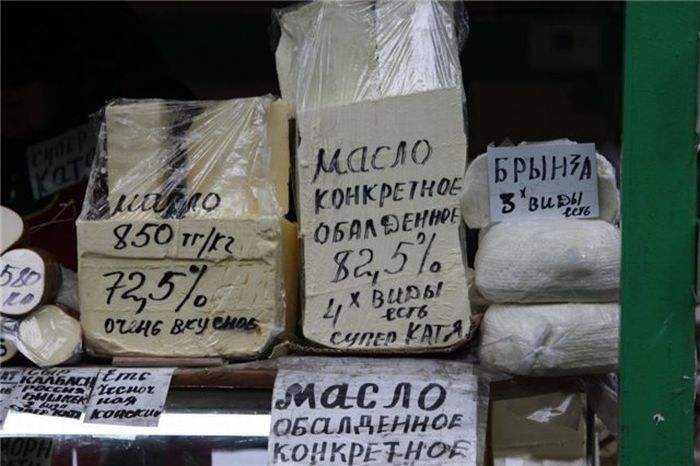 СУПЕР
КАТЯ
МАСЛО
850 тг/кг
72,5%
ОЧЕНЬ ВКУСНОЕ
МАСЛО
КОНКРЕТНОЕ
ОБАЛДЕННОЕ
82,5%
4х ВИДЫ
ЕСТЬ
СУПЕР КАТЯ
БРЫНЗА
3х ВИДЫ
ЕСТЬ
580
СЫР
КАЛБАСН
РОССИЯ
БИШКЕК
2 вида
СУПЕР КАТЯ
ЕТЬ
ЧЕСНОЧ
НАЯ
КОНСКИЙ
МАСЛО
ОБАЛДЕННОЕ
КОНКРЕТНОЕ